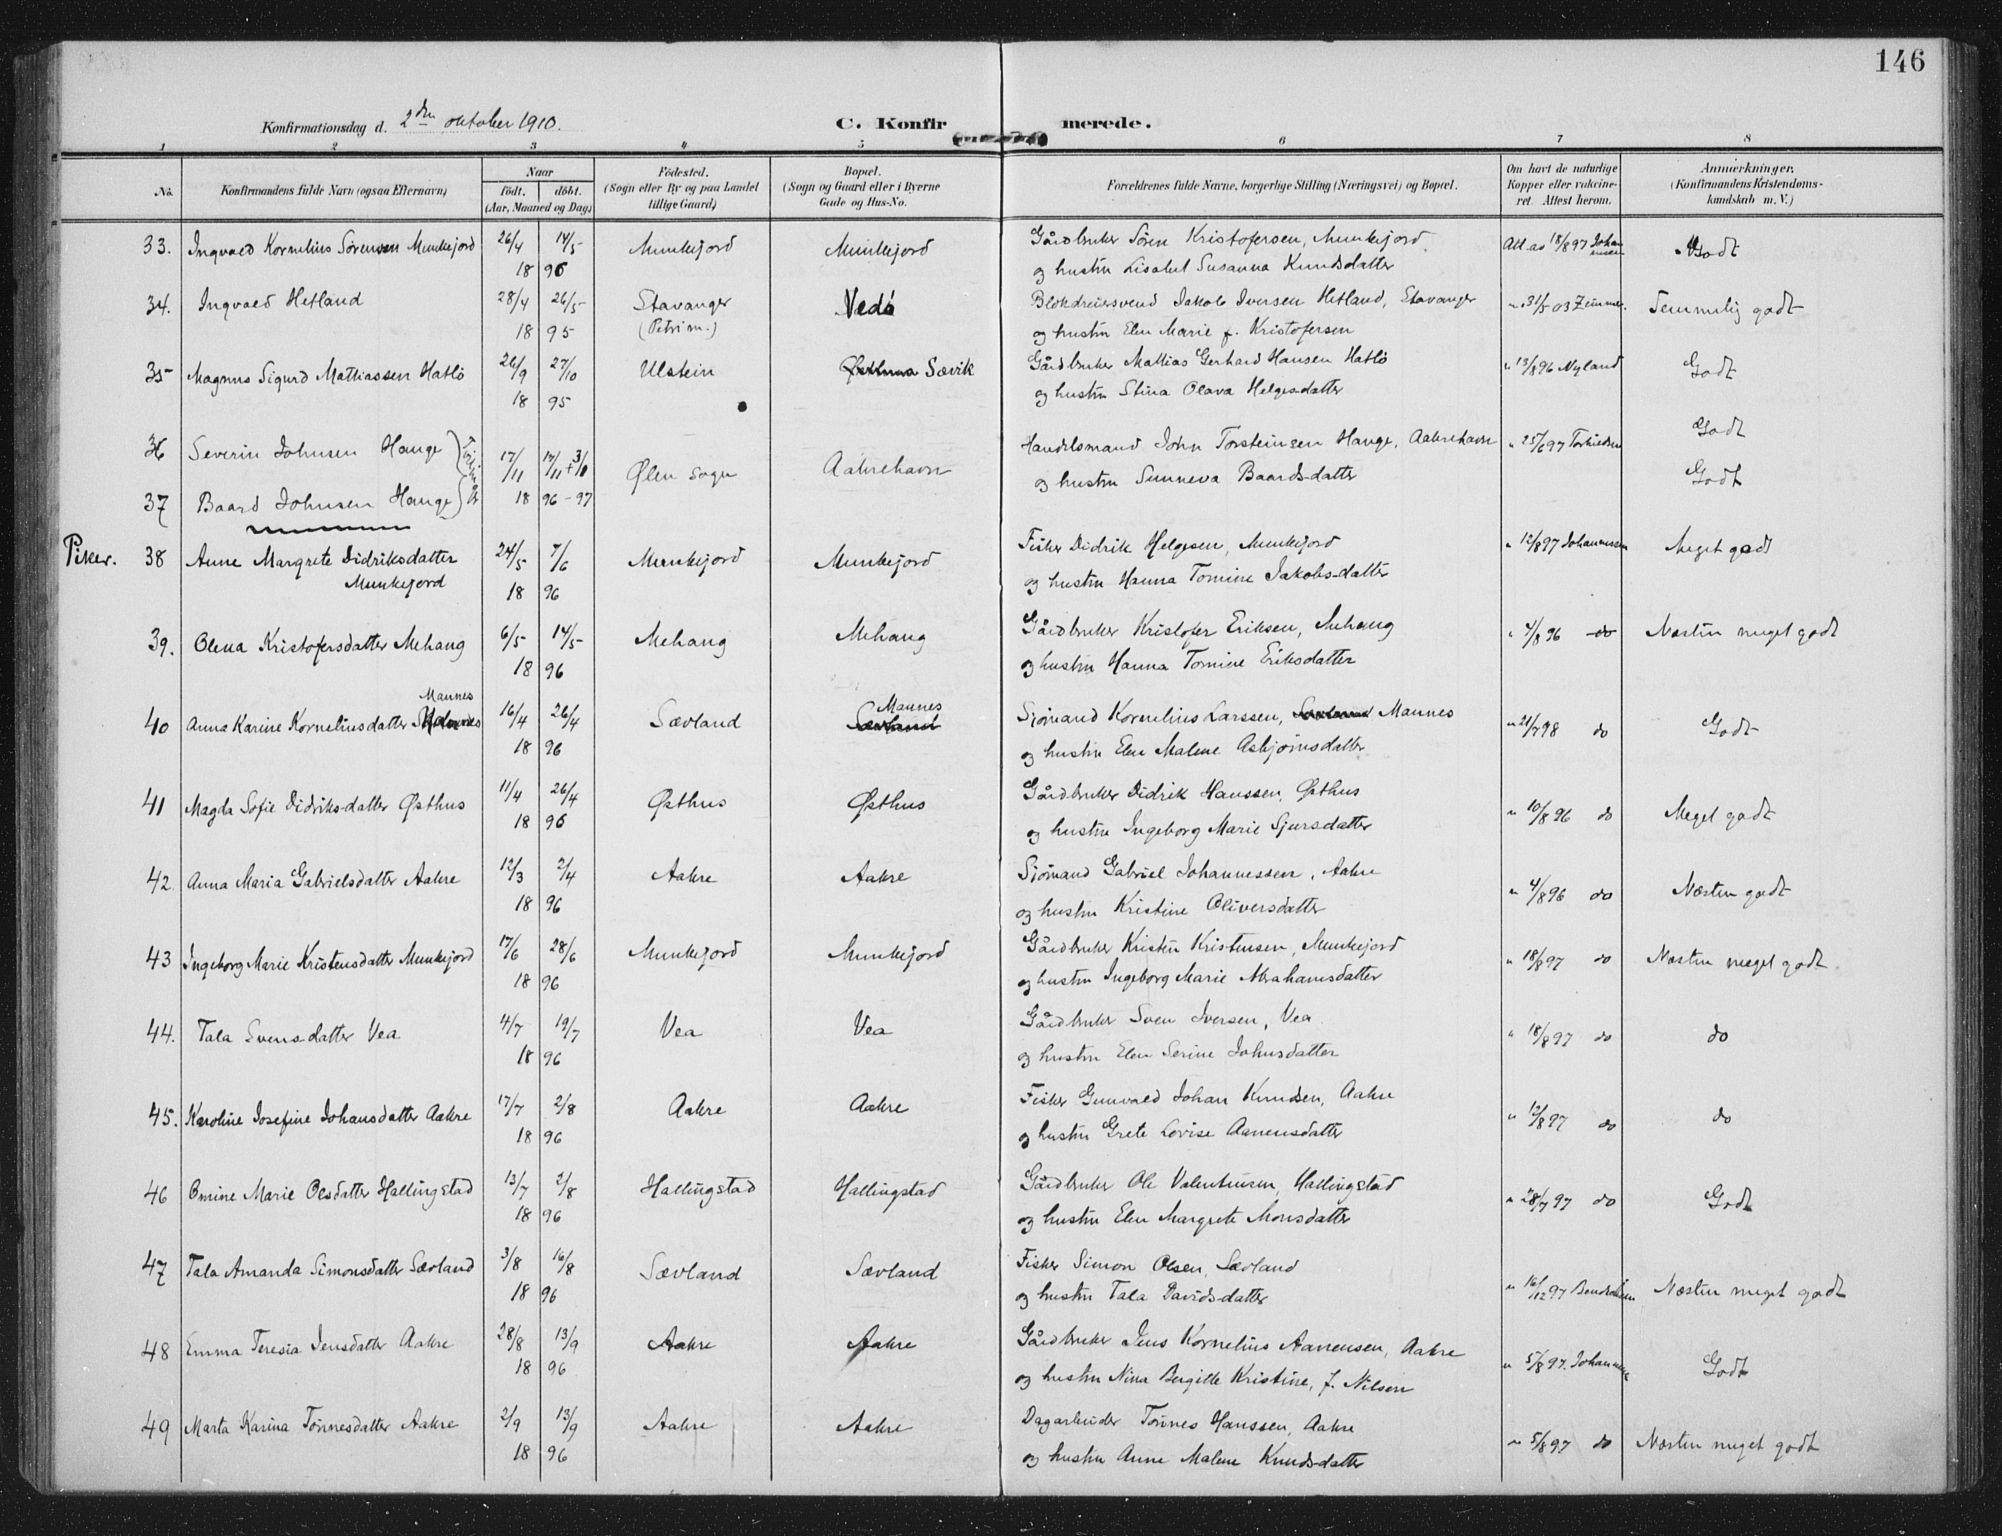 146
Konfirmationsdag d. 2den oktober 1910. C. Konfirmerede.
1 2 3 4 5 6 7 8
No. Konfirmandens fulde Navn (ogsaa Efternavn) Naar født. døbt. (Aar, Maaned og Dag) Fødested. (Sogn eller By og paa Landet tillige Gaard) Bopæl. (Sogn og Gaard eller i Byerne Gade og Hus-No. Forældrenes fulde Navne, borgerlige Stilling (Næringsvei) og Bopæl. Om havt de naturlige Kopper eller vaccineret. Attest herom. Anmærkninger. (Konfirmandens Kristendomskundskab m. V.)
33. Ingvald Kornelius Sørensen Munkejord 26/4 14/5 Munkejord Munkejord Gårdbruker Sören Kristofersen, Munkejord Att. as 18/8 97 Johannesen Godt
18 96 og hustru Lisabet Susanna Knudsdatter
34. Ingvald Hetland 28/4 26/5 Stavanger Vedö Blokdreiersvend Jakob Iversen Hetland, Stavanger " 31/5 03 Zimmer. Temmelig godt
18 95 (Petri m.) og hustru Elen Marie f. Kristofersen
35 Magnus Sigurd Mathiassen Hatlö 26/9 27/10 Ulstein Østhus Sævik Gårdbruker Mathias Gerhard Hansen Hatlö " 13/8 96 Nyland Godt
18 95 og hustru Stina Olava Helgesdatter
36 Severin Johnsen Hauge Tvillinger 17/11 17/11 + 3/10 Ølen sogn Aakrehavn Handelsmand John Torsteinsen Hauge, Aakrehavn " 25/6 97 Torkildsen Godt
37 Baard Johnsen Hauge 18 96 - 97 og hustru Sunneva Baards-datter Godt
Piker. 38 Anne Margrete Didriksdatter 24/5 7/6 Munkejord Munkejord Fisker Didrik Helgesen, Munkejord " 12/8 97 Johannessen Meget godt
Munkejord 18 96 og hustru Hanna Tomine Jakobs-datter
39. Olena Kristofersdatter Mehaug 6/5 14/5 Mehaug Mehaug Gårdbruker Kristofer Eriksen, Mehaug " 4/8 96 do Næsten meget godt
18 96 og hustru Hanna Tomine Eriksdatter
40 Anna Karine Korneliusdatter Mannes 16/4 26/4 Sævland Sævland Mannes Sjömand Kornelius Larssen, Sævland Mannes " 21/7 98 do Godt
18 96 og hustru Elen Malene Asbjörnsdatter
41 Magda Sofie Didriks-datter Østhus 11/4 26/4 Østhus Østhus Gårdbruker Didrik Hanssen, Østhus " 10/8 96 do Meget godt
18 96 og hustru Ingeborg Marie Sjursdatter
42. Anna Maria Gabrielsdatter Aakre 12/3 2/4 Aakre Aakre Sjömand Gabriel Johannessen, Aakre " 4/8 96 do Næsten godt
18 96 og hustru Kristine Oliversdatter
43 Ingeborg Marie Kristensdatter Munkejord 17/6 28/6 Munkejord Munkejord Gårdbruker Kristen Kristensen, Munkejord " 18/8 97 do Næsten meget godt.
18 96 og hustru Ingeborg Marie Abrahamsdatter
44. Tala Svens-datter Vea 4/7 19/7 Vea Vea Gårdbruker Sven Iversen, Vea " 18/8 97 do do
18 96 og hustru Elen Serine Johnsdatter
45. Karoline Josefine Johansdatter Aakre 17/7 2/8 Aakre Aakre Fisker Gunvald Johan Knudsen, Aakre " 12/8 97 do do
18 96 og hustru Grete Lovise Aanensdatter
46 Omine Marie Olsdatter Hallingstad 13/7 2/8 Hallingstad Hallingstad Gårdbruker Ole Valentinsen, Hallingstad " 28/7 97 do Godt
18 96 og hustru Elen Margrete Monsdatter
47 Tala Amanda Simonsdatter Sævland 3/8 16/8 Sævland Sævland Fisker Simon Olsen, Sævland " 16/12 97 Næsten meget godt
18 96 og hustru Tala Davids-datter
48 Emma Teresia Jensdatter Aakre 28/8 13/9 Aakre Aakre Gårdbruker Jens Kornelius Aanensen, Aakre " 5/8 97. Johannessen Godt
18 96 og hustru Nina Bergitte Kristine, f. Nilsen
49 Marta Karina Tönnesdatter Aakre 2/9 13/9 Aakre Aakre Dagarbeider Tönnes Hanssen, Aakre " 5/8 97 do Næsten meget godt
18 96 og hustru Anne Malene Knuds-datter